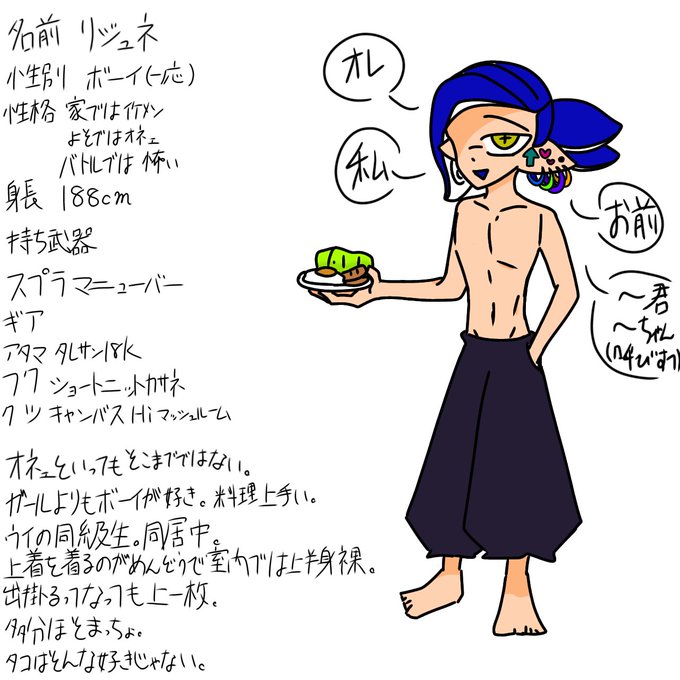 名前 リジュネ
性別 ボーイ(一応)
性格 家ではイケメン
よそではオネェ
バトルでは 怖い
身長 188cm
持ち武器
スプラマニューバー
ギア
アタマ タレサン18K
フク ショートニットカサネ
クツ キャンバスHiマッシュルーム
オネェといってもそこまでではない。
ガールよりもボーイが好き。料理上手い。
ウイの同級生。同居中。
上着を着るのがめんどうで室内では上半身裸。
出掛るってなっても上一枚。
多分ほそまっちょ。
タコはそんな好きじゃない。
オレ
私〜
お前
〜君
〜ちゃん
(呼びすて)